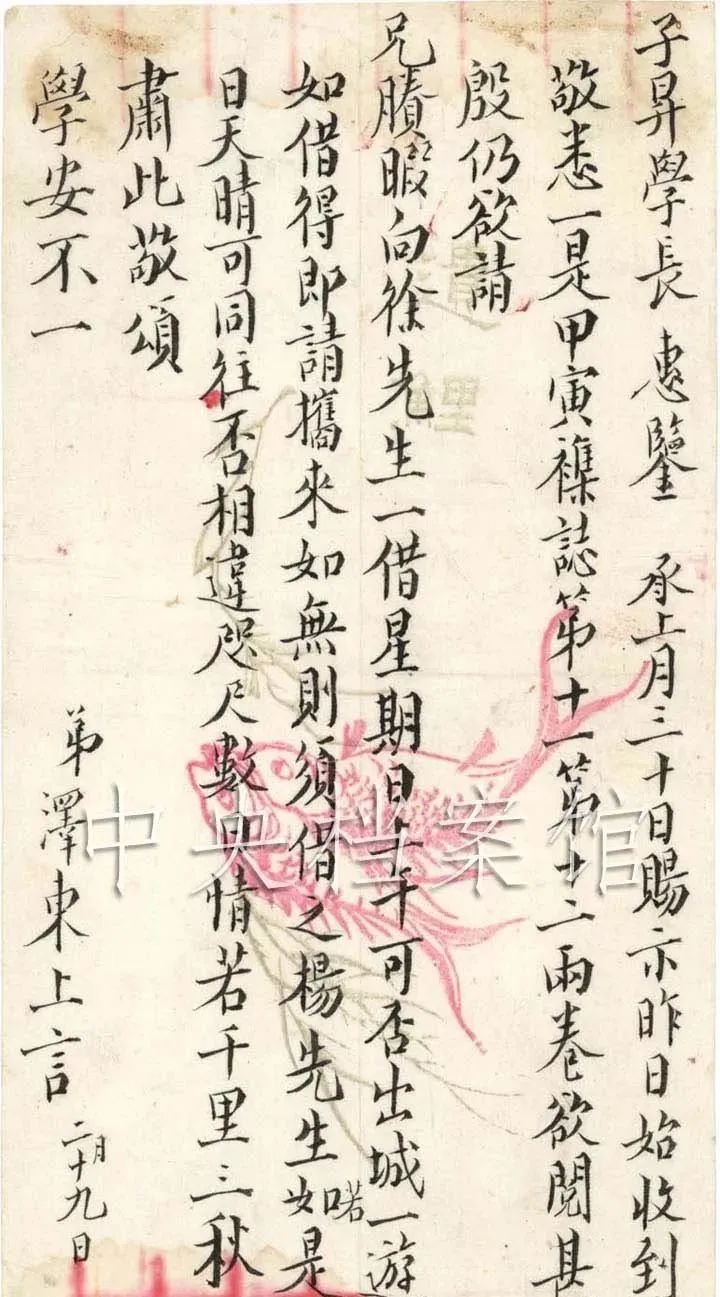 子昇學長惠鑒　承上月三十日賜示昨日始收到
敬悉一是甲寅襍誌第十一第十二兩卷欲閱甚
殷仍欲請
兄賸暇向徐先生一借星期日上午可否出城一游
如借得即請攜來如無則須借之楊先生喏如是
日天晴可同往否相違咫尺數日情若千里三秋
肅此敬頌
學安不一
弟澤東上言
二月十九日
中央档案馆